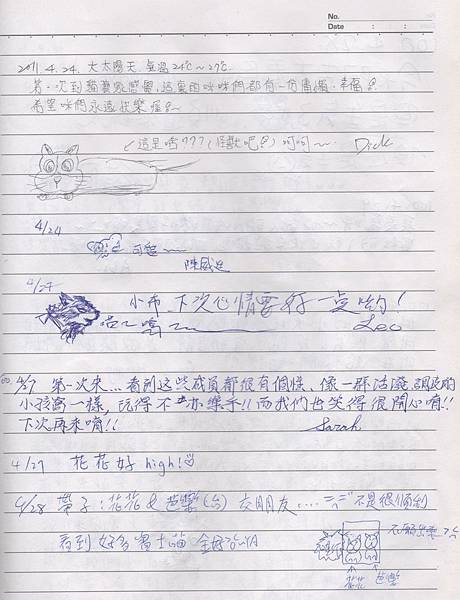 No.
Date
2011.4.24. 大太陽天. 氣溫24℃~27℃.
第一次到貓 感覺,這裏的咪咪們都有一份 . 幸福?.
希望咪們永遠快樂喔?~
這是啥???(怪獸吧?) 呵呵~ Dick
4/24
可愛~~
陳
4/24
小布 下次心情要好一点喲!
Leo
4/27 第一次來... 看到这些成員都很有個性、像一群活潑調皮的
小孩高一樣, 玩得不亦樂乎!! 而我們也笑得很開心唷!!
下次再來唷!! Sarah
4/27 花花好high!
4/28 帶子:花花 & 芭樂(台) 交朋友.... 不是很順利
看到好多賓士貓 全好
花花 芭樂